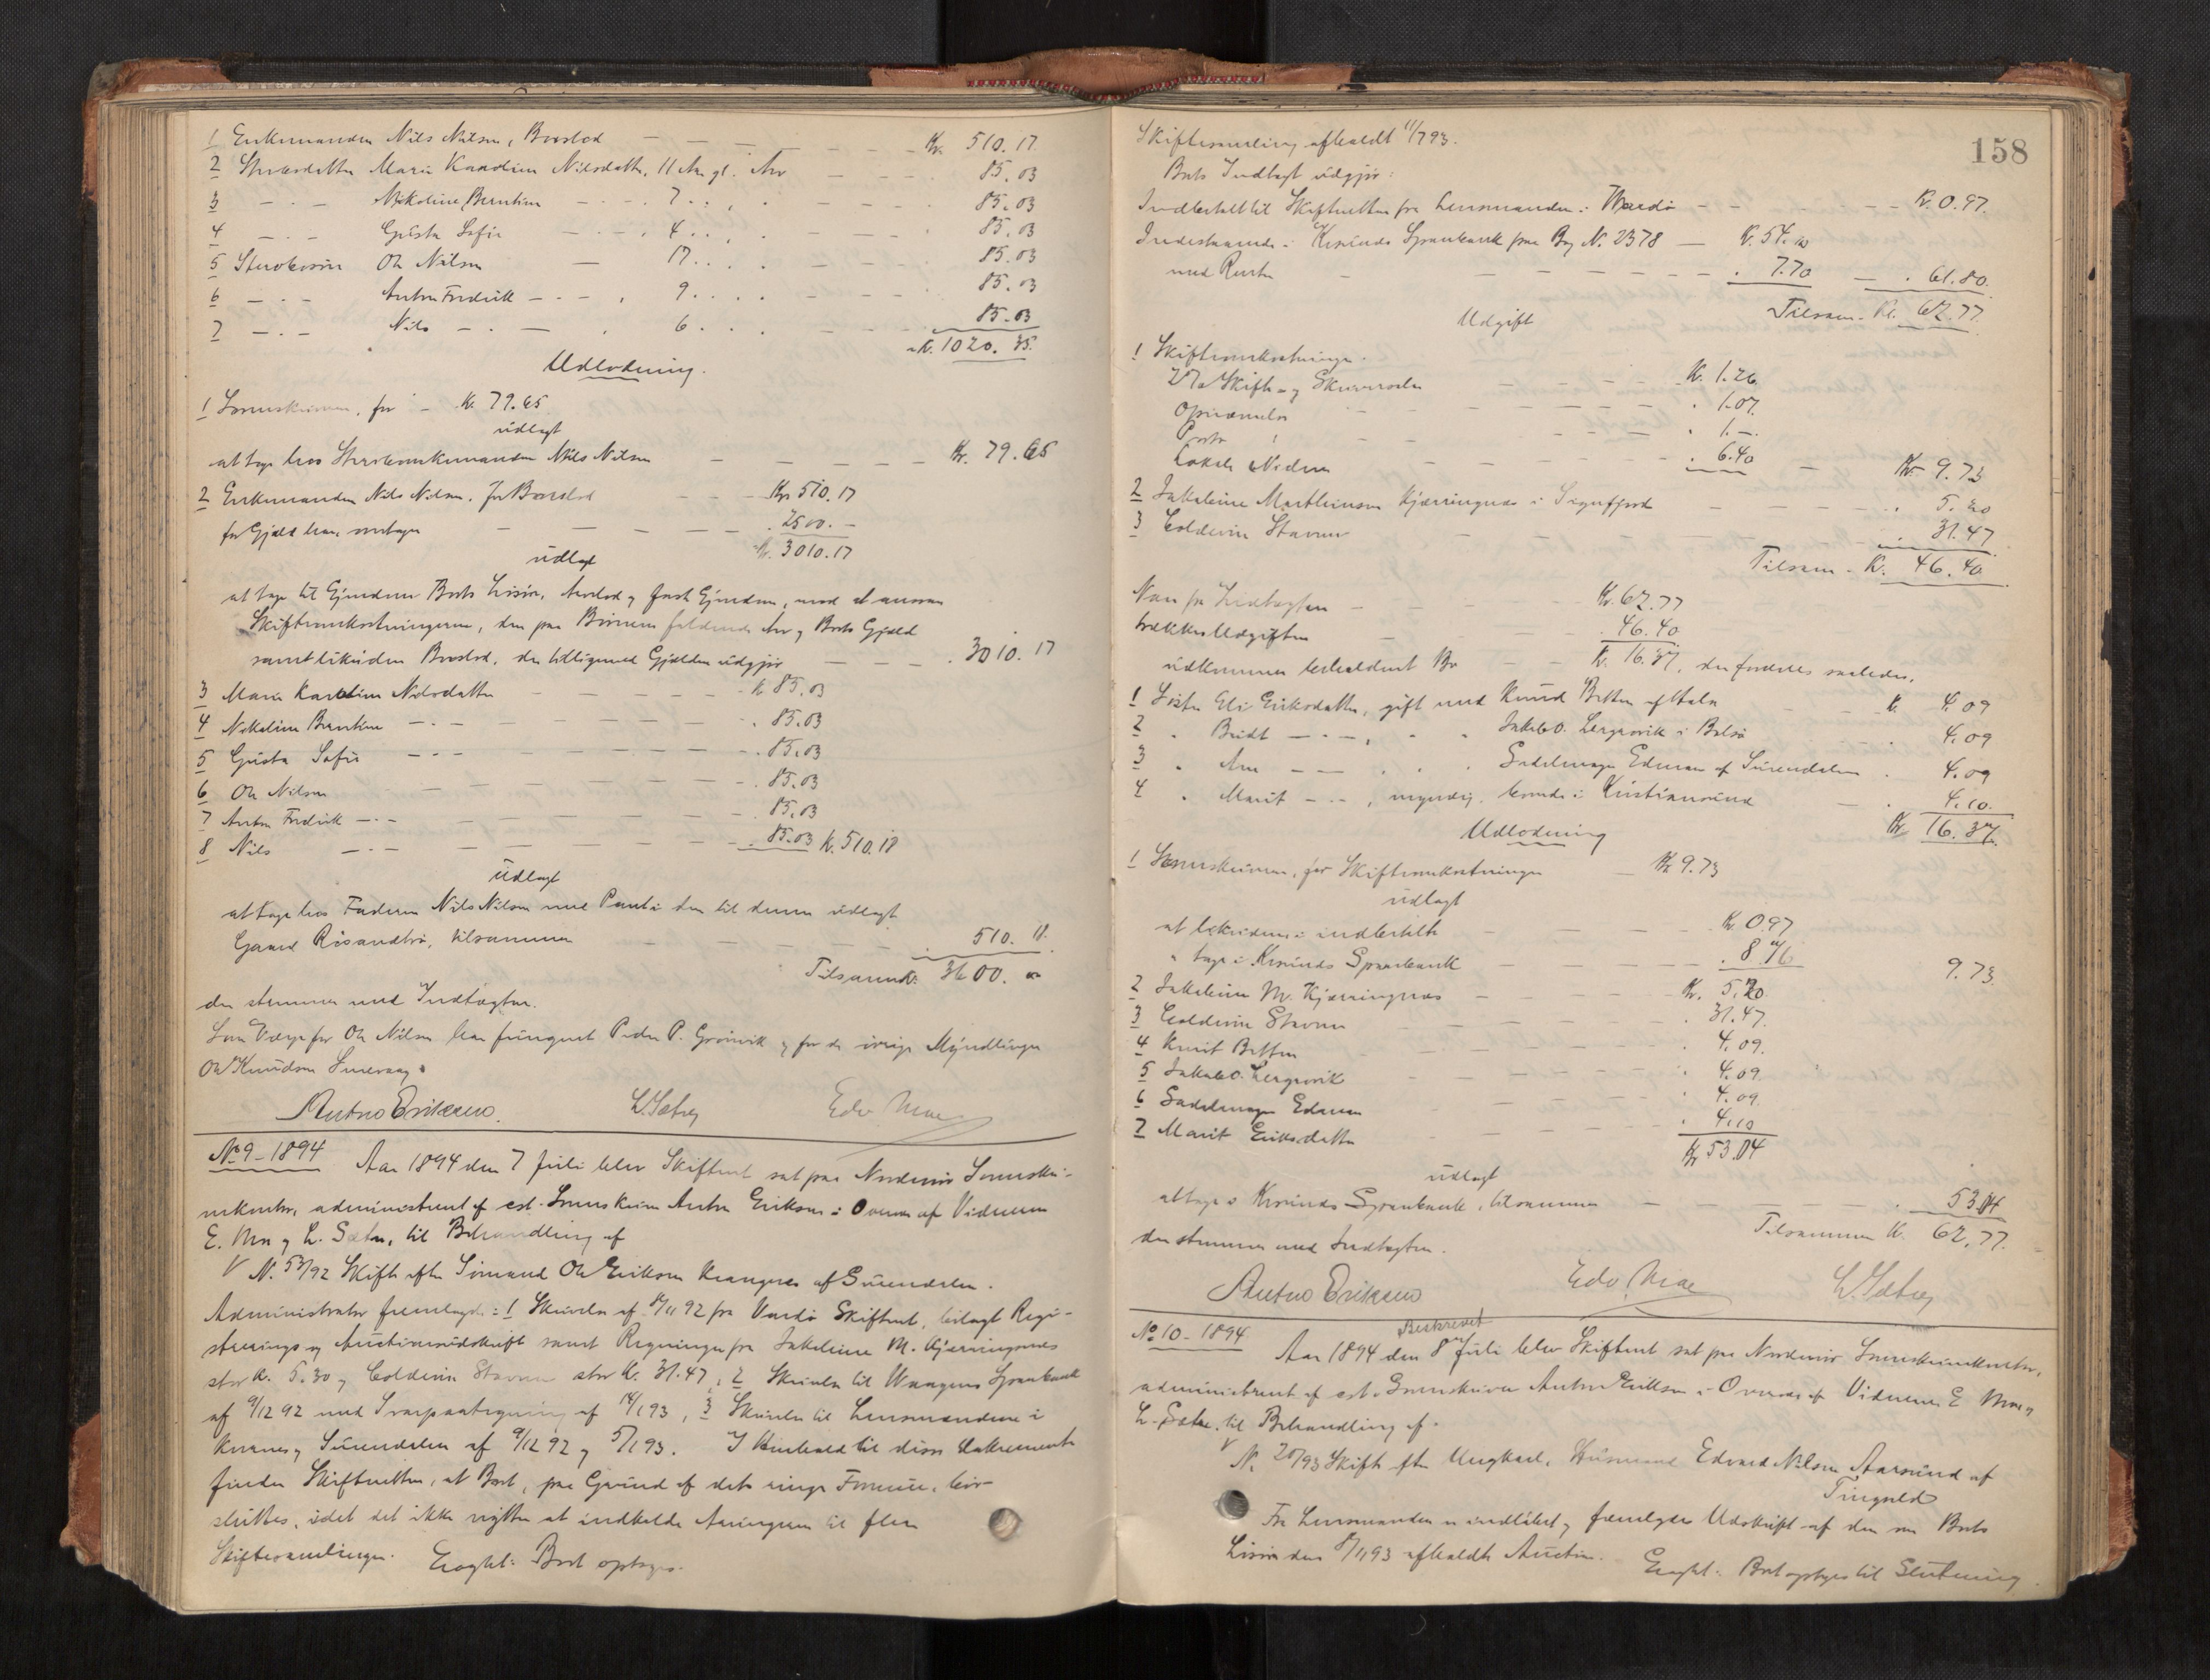 1 Enkemanden Nils Nilsen, Boeslod — Kr. 510.17
2 Sterbsdatter Marie Karoline Nilsdatter, 11 Aar gl. Arv — 85.03
3 — Nikoline Berntine — 7 — 85.03
4 — Gusta Sofie — 4 — 85.03
5 Sterbsøn Ole Nilsen — 17 — 85.03
6 — Anton Fredrik — 9 — 85.03
7 — Nils — 6 — 85.03
Kr. 1020.35
Udlodning.
1 Sorenskriveren, for — Kr. 79.65
udlagt
at tage hos Sterbsenkemanden Nils Nilsen — Kr. 79.65
2 Enkemanden Nils Nilsen, for Boeslod — Kr. 510.17
for Gjæld han overtager — 2500.—
Kr. 3010.17
udlagt
at tage til Eiendom Boets Løsøre, Avslod og fast Eiendom, mod at ansvare
Skifteomkostningerne, den paa Børnene faldende Arv og Boets Gjæld
samt likviden Boeslod, der tilligemed Gjælden udgjør — 3010.17
3 Marie Karoline Nilsdatter — Kr. 85.03
4 Nikoline Berntine — 85.03
5 Gusta Sofie — 85.03
6 Ole Nilsen — 85.03
7 Anton Fredrik — 85.03
8 Nils — 85.03 Kr. 510.18
udlagt
at tage hos Faderen Nils Nilsen med Pant i den til denne udlagt
Gaard Risandbø, tilsammen — 510.18
Tilsammen Kr. 3600.00
der stemmer med Indtægten.
Som Værge for Ole Nilsen har fungeret Peder P. Grønvik og for de øvrige Myndlinger
Ole Knudsen
Anton Eriksen L. Sæter Edv. Moe
No 9 - 1894 Aar 1894 den 7 Juli blev Skifteret sat paa Nordmør Sorenskri-
verkontor, administreret af cst. Sorenskriver Anton Eriksen i Overvær af Vidnerne
E. Moe og L. Sæter, til Behandling af
N. 53/92 Skifte efter Sømand Ole Eriksen Krangnes af Surendalen.
Administrator fremlagde: 1 Skrivelse af 8/11 92 fra Vardø Skifteret, bilagt Regi-
strerings og Auktionsudskrift samt Regninger fra Jakobine M. Kjerringnes
stor Kr. 5.30 og Coldevin Stavnes stor Kr. 31.47, 2 Skrivelse til Waagens Sparebank
af 9/12 92 med Svarpaategning af 14/1 93, 3 Skrivelse til Lensmændene i
Kvernes og Surendalen af 9/12 92 og 5/1 93. I Henhold til disse Dokumenter
finder Skifteretten, at Boet, paa Grund af dets ringe Formue, bør
sluttes, idet det ikke nytter at indkalde Arvingerne til flere
Skiftesamlinger. Eragtet: Boet optages.
158
Skiftesamling afholdt 11/7 93.
Boets Indtægt udgjør:
Indbetalt til Skifteretten fra Lensmanden i Vardø — Kr. 0.97.
Indestaaende i Krsunds Sparebank paa Bog N. 2378 — Kr. 54.10
med Renter — 7.70 — 61.80
Tilsam. Kr. 62.77.
Udgift
1 Skifteomkostninger.
2% Skifte- og Skriversalær — Kr. 1.26
Opnævnelse — 1.07.
Porto — 1.—
Lokale Vidner — 6.40 — Kr. 9.73
2 Jakobine Marthinsen Kjærringnæs i — 5.20
3 Coldevin Stavnes — 31.47
Tilsam. Kr. 46.40
Naar fra Indtægten — Kr. 62.77
trækkes Udgiften — 46.40
udkommer beholdent Bo — Kr. 16.37, der fordeles saaledes.
1 Søster Eli Eriksdatter, gift med Knud Bitten af Halse — Kr. 4.09
2 " Beidt — Jakob O. Lergrovik i Bolsø — 4.09
3 " Ane — Sadelmager Edmann af Surendalen — 4.09
4 " Marit — myndig, boende i Kristiansund — 4.10.
Kr. 16.37.
Udlodning
1 Sorenskriveren, for Skifteomkostninger — Kr. 9.73
udlagt
at likvidere i indbetalte — Kr. 0.97
" tage i Krsunds Sparebank — 8.76 9.73.
2 Jakobine M. Kjærringnæs — Kr. 5.20
3 Coldevin Stavnes — 31.47.
4 Knut Bitten — 4.09.
5 Jakob O. Lergrovik — 4.09
6 Sadelmager Edman — 4.09
7 Marit Eriksdatter — 4.10
Kr. 53.04
udlagt
at tage i Krsunds Sparebank, tilsammen — 53.04
Tilsammen Kr. 62.77.
der stemmer med Indtægten.
Anton Eriksen Edv. Moe L. Sæter
Beskrevet
No 10 - 1894 Aar 1894 den 8 Juli blev Skifteret sat paa Nordmør Sorenskriverkontor,
administreret af cst. Sorenskriver Anton Eriksen i Overvær af Vidnerne E. Moe og
L. Sæter, til Behandling af.
N. 20/93 Skifte efter Ungkarl, Husmand Edvard Nilsen Aarsund af
Tingvold
Fra Lensmanden er indløbet og fremlagdes Udskrift af den over Boets
Løsøre den 8/11 93 afholdte Auction. Eragtet: Boet optages til Slutning.